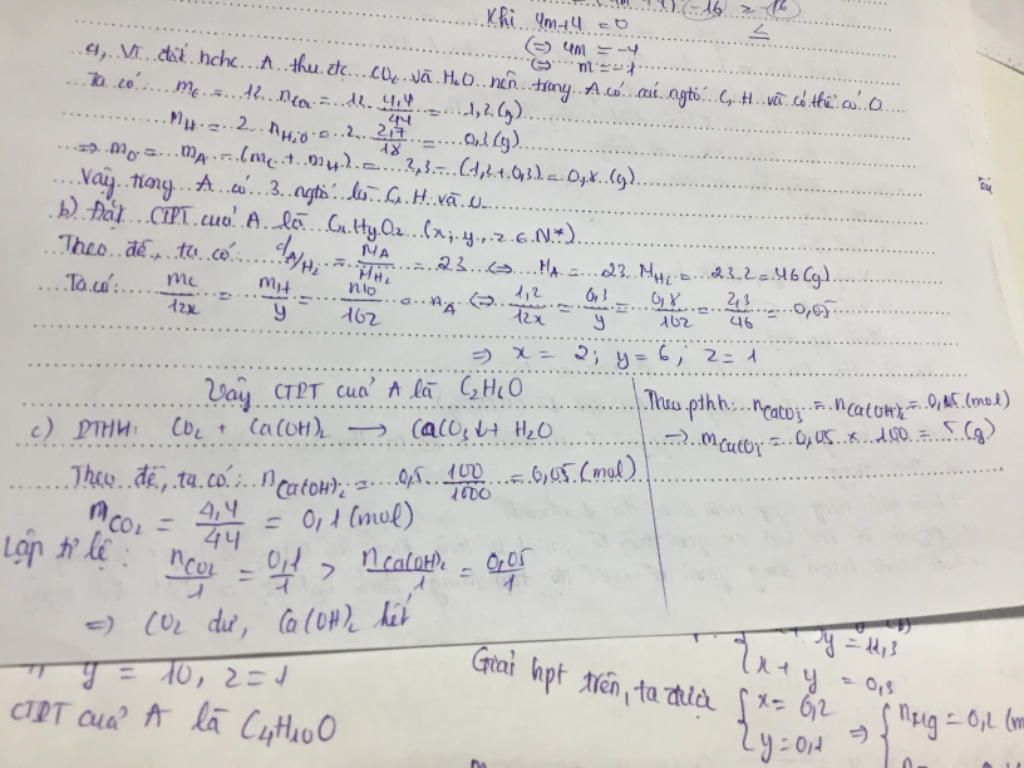 -16 ≥ -16
Khi 4m+4 = 0
(=) 4m = -4
(=) m = -1
a, Vì đốt hchc A thu đc CO₂ và H₂O nên trong A có các ngtố C, H và có thể có O
Ta có: m_C = 12. n_CO₂ = 12. 4,4/44 = 1,2 (g)
m_H = 2. n_H₂O = 2. 2,7/18 = 0,3 (g)
=> m_O = m_A - (m_C + m_H) = 2,3 - (1,2 + 0,3) = 0,8 (g)
Vậy trong A có 3 ngtố là C, H và O
b) Đặt CTPT của A là CxHyOz (x; y, z ∈ N*)
Theo đề, ta có: d_A/H₂ = M_A/M_H₂ = 23 <=> M_A = 23. M_H₂ = 23.2 = 46 (g)
Ta có: m_C/12x = m_H/y = m_O/16z = n_A <=> 1,2/12x = 0,3/y = 0,8/16z = 2,3/46 = 0,05
=> x = 2; y = 6; z = 1
Vậy CTPT của A là C₂H₆O
c) PTHH: CO₂ + Ca(OH)₂ → CaCO₃↓ + H₂O
Theo đề, ta có: n_Ca(OH)₂ = 0,5. 100/1000 = 0,05 (mol)
m_CO₂ = 4,4/44 = 0,1 (mol)
Lập tỉ lệ: n_CO₂/1 = 0,1/1 > n_Ca(OH)₂/1 = 0,05/1
=> CO₂ dư, Ca(OH)₂ hết
Theo pthh: n_CaCO₃ = n_Ca(OH)₂ = 0,05 (mol)
=> m_CaCO₃ = 0,05 x 100 = 5 (g)
y = 10, z = 1
CTPT của A là C₄H₁₀O
y = 11,3
x + y = 0,3
Giải hpt trên, ta được { x = 0,2
y = 0,1 => { n_Mg = 0,2 (m